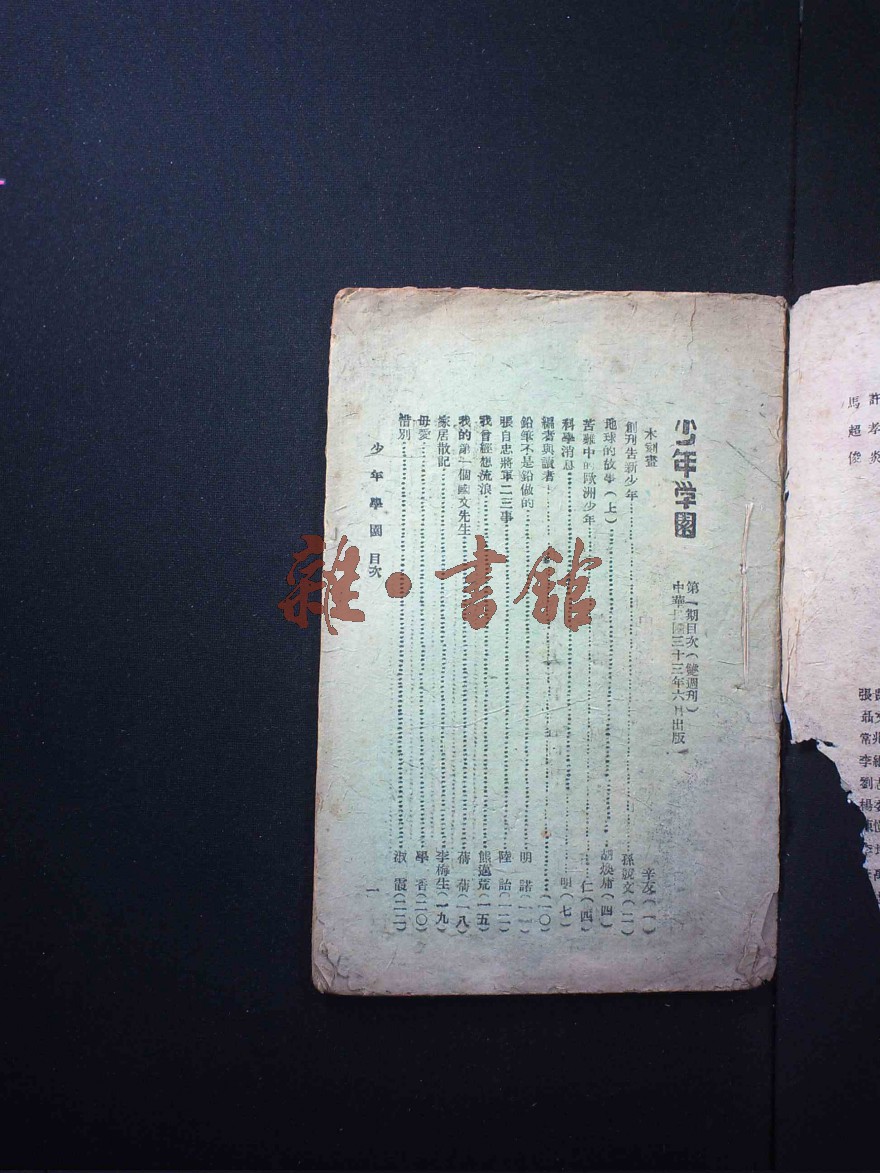 少年学園
第一期目次(雙週刊)
中華民國三十三年六月出版
木刻畫 辛友(一)
創刊告新少年 孫 文(二)
地球的故事(上) 胡煥庸(四)
苦難中的歐洲少年 仁(四)
科學消息 明(七)
編者與讀者 (一〇)
鉛筆不是鉛做的 明 諾(一一)
張自忠將軍二三事 陸 詒(一二)
我曾經想流浪 熊 荒(一五)
我的第一個國文先生 蒨 蒨(一八)
家居散記 李梅生(一九)
母愛 學 香(二〇)
惜別 淑 霞(二二)
少年學園 目次
一
許孝炎
馬超俊
張
聶
常兆
李繼
劉
楊
雜·書館